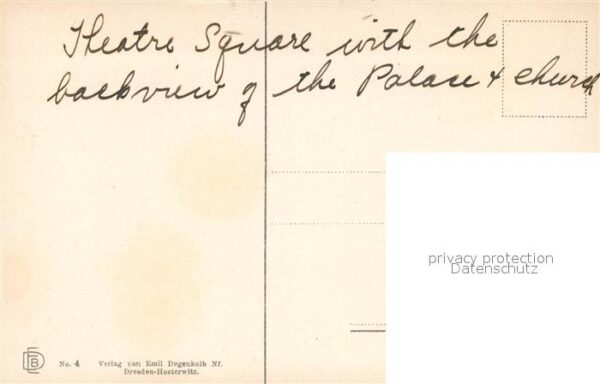 Theatre Square with the
backview of the Palace & church
privacy protection
Datenschutz
No. 4 Verlag von Emil Degenkolb Nf.
Dresden-Hosterwitz.